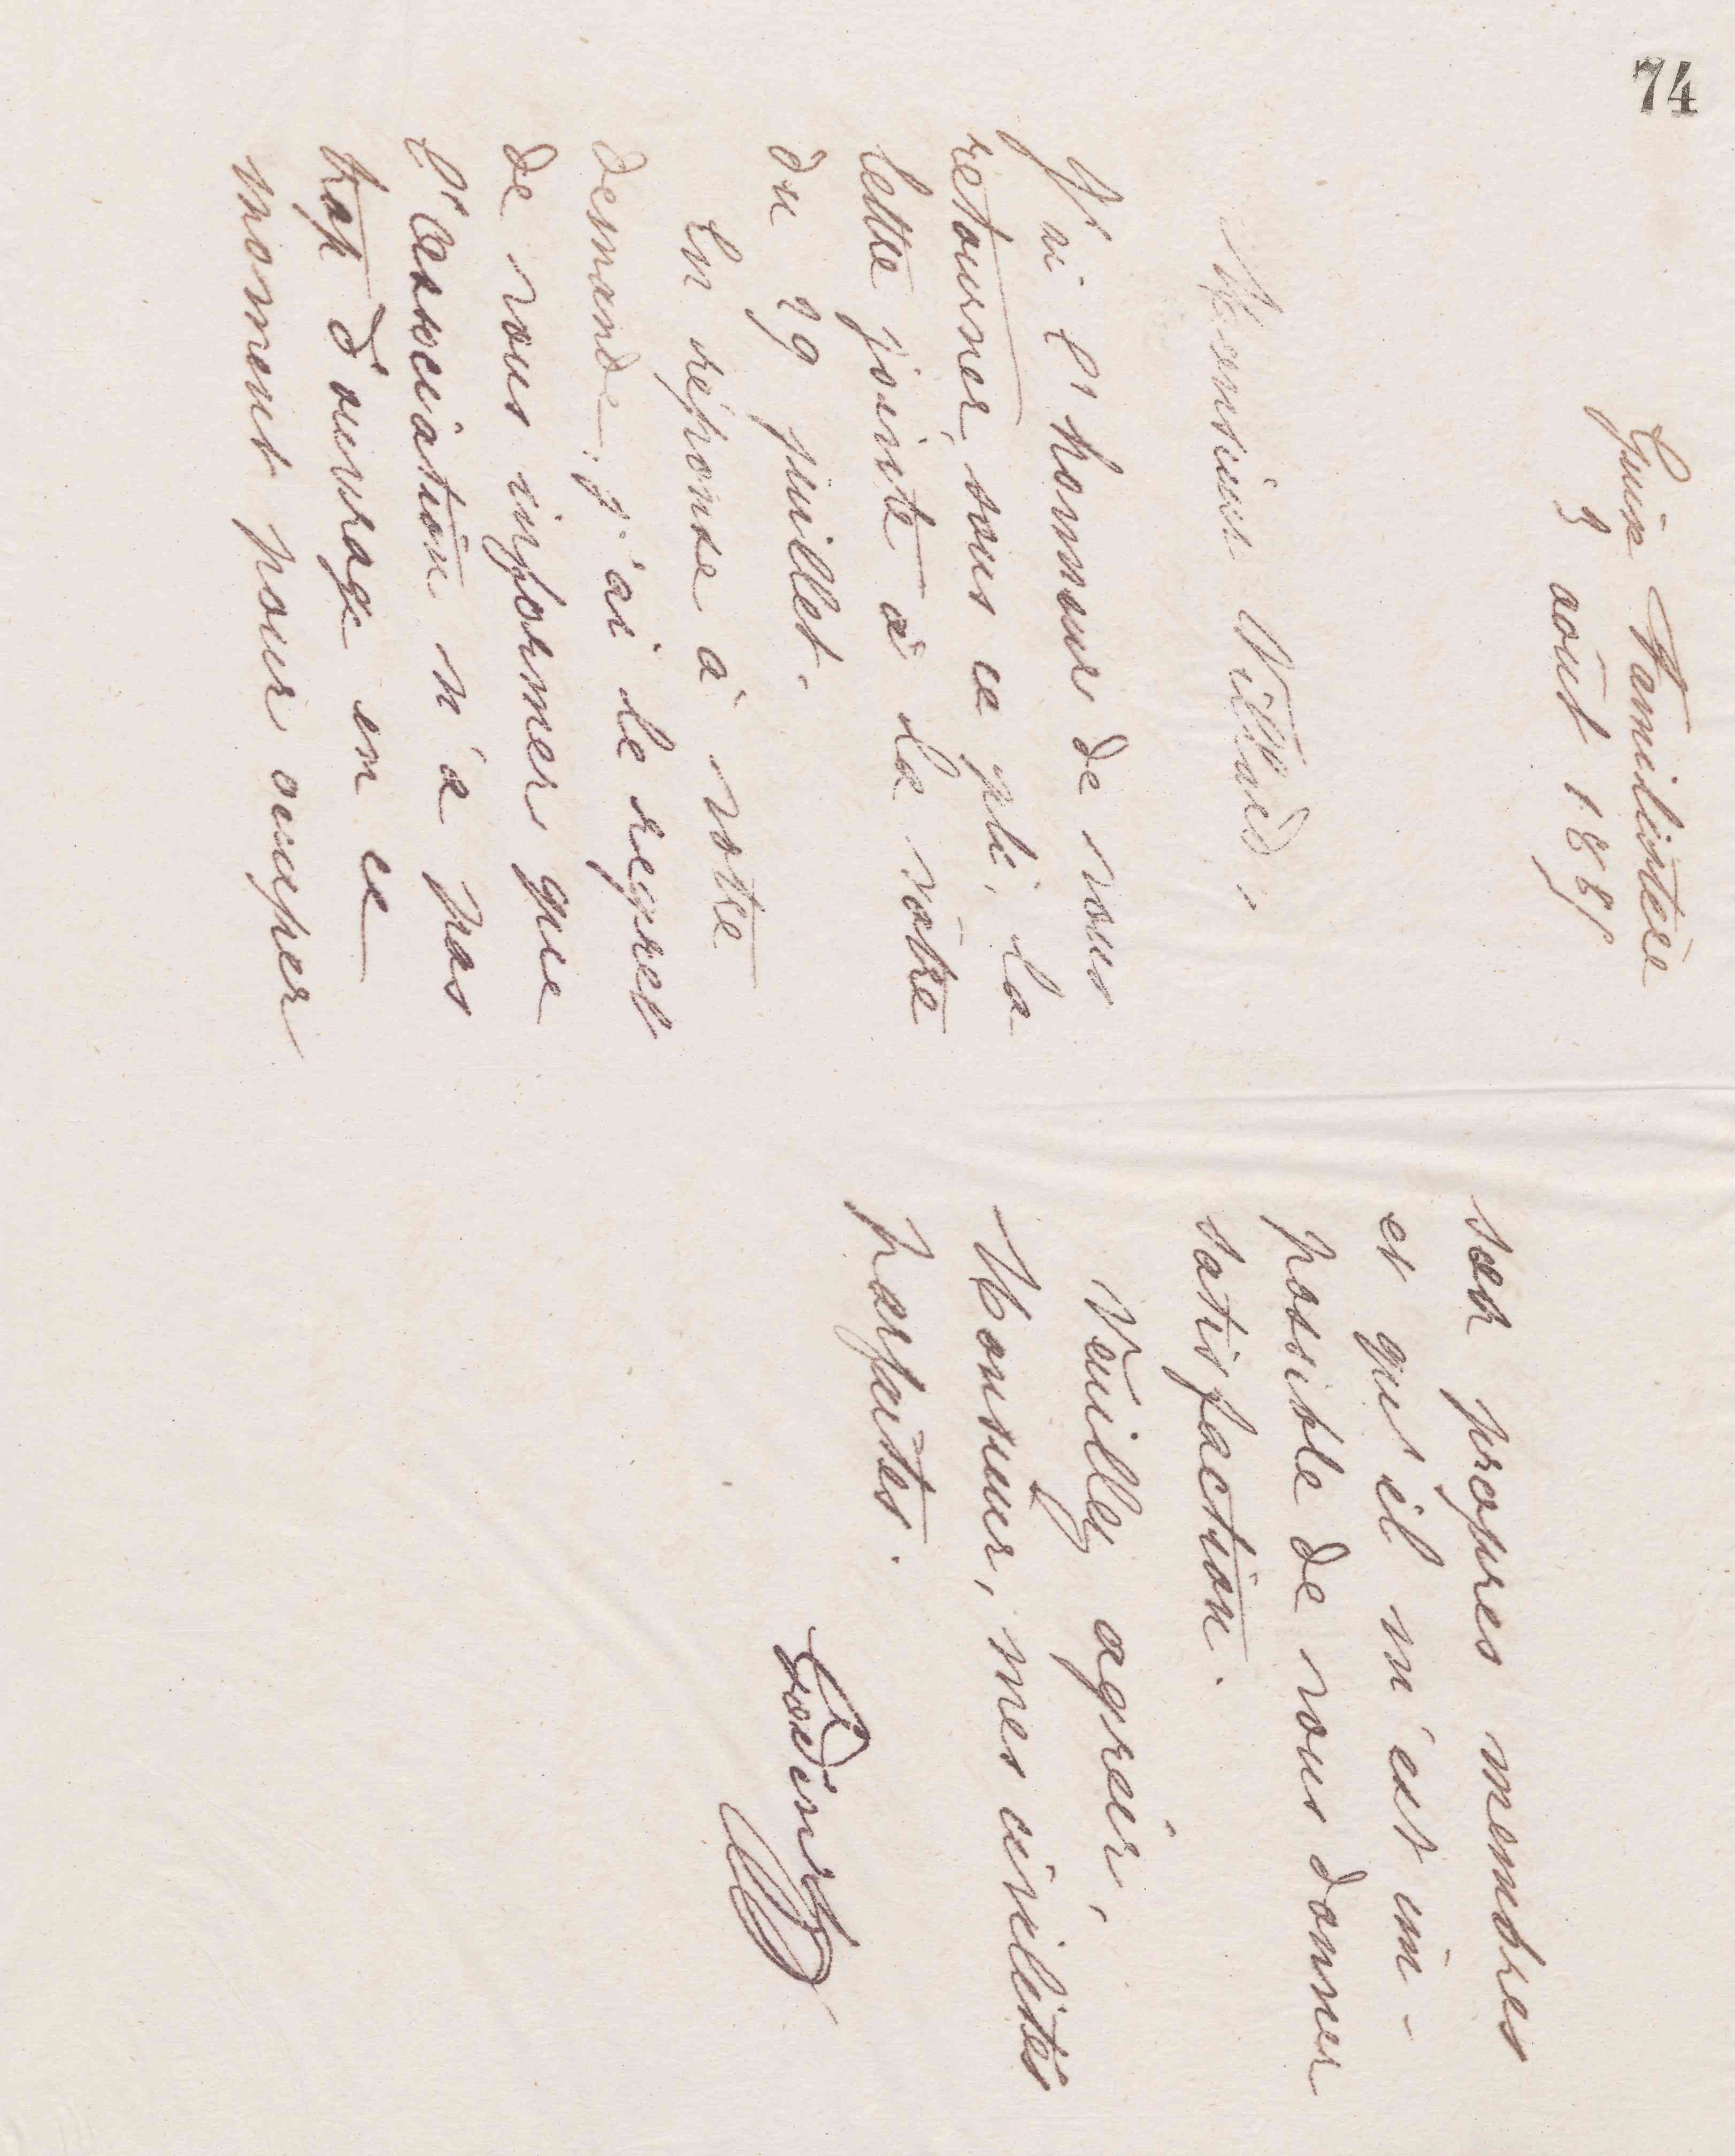 74
Guise Familistère
3 août 1885
Monsieur Villard,
J'ai l'honneur de vous
retourner, sous ce pli, la
lettre jointe à la vôtre
du 29 juillet.
En réponse à votre
demande, j'ai le regret
de vous informer que
l'association n'a pas
trop d'ouvrage en ce
moment pour occuper
ses propres membres
et qu'il m'est im-
possible de vous donner
satisfaction.
Veuillez agréer,
Monsieur, mes civilités
parfaites.
Godin